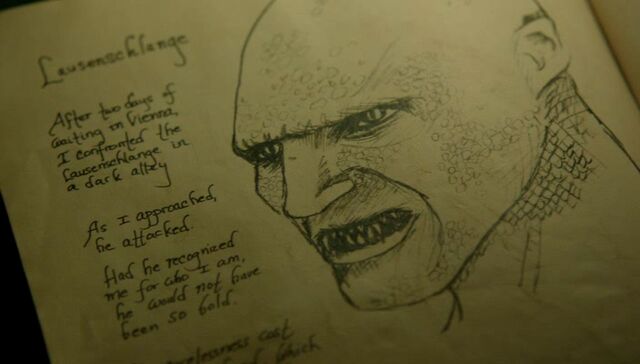 Lausenschlange
After two days of
waiting in Vienna,
I confronted the
Lausenschlange in
a dark alley
As I approached,
he attacked.
Had he recognized
me for who I am,
he would not have
been so bold.
cost
which